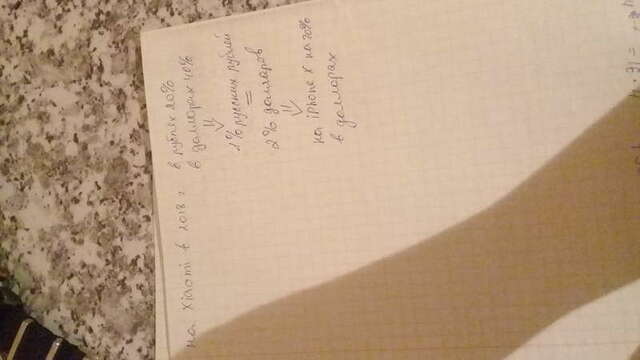 на Xiaomi в 2018 г. в рублях 20%
в долларах 40%
⇓
1% русских рублей
=
2% долларов
⇓
на iPhone X на 70%
в долларах